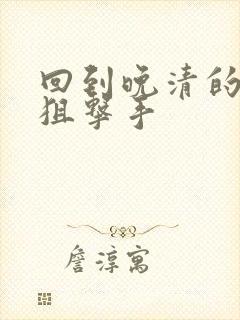 回到晚清的
狙擊手
詹淳寓